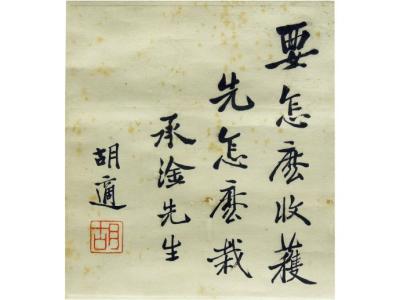 要怎麽收穫
先怎麽栽
承淦先生
胡適
胡